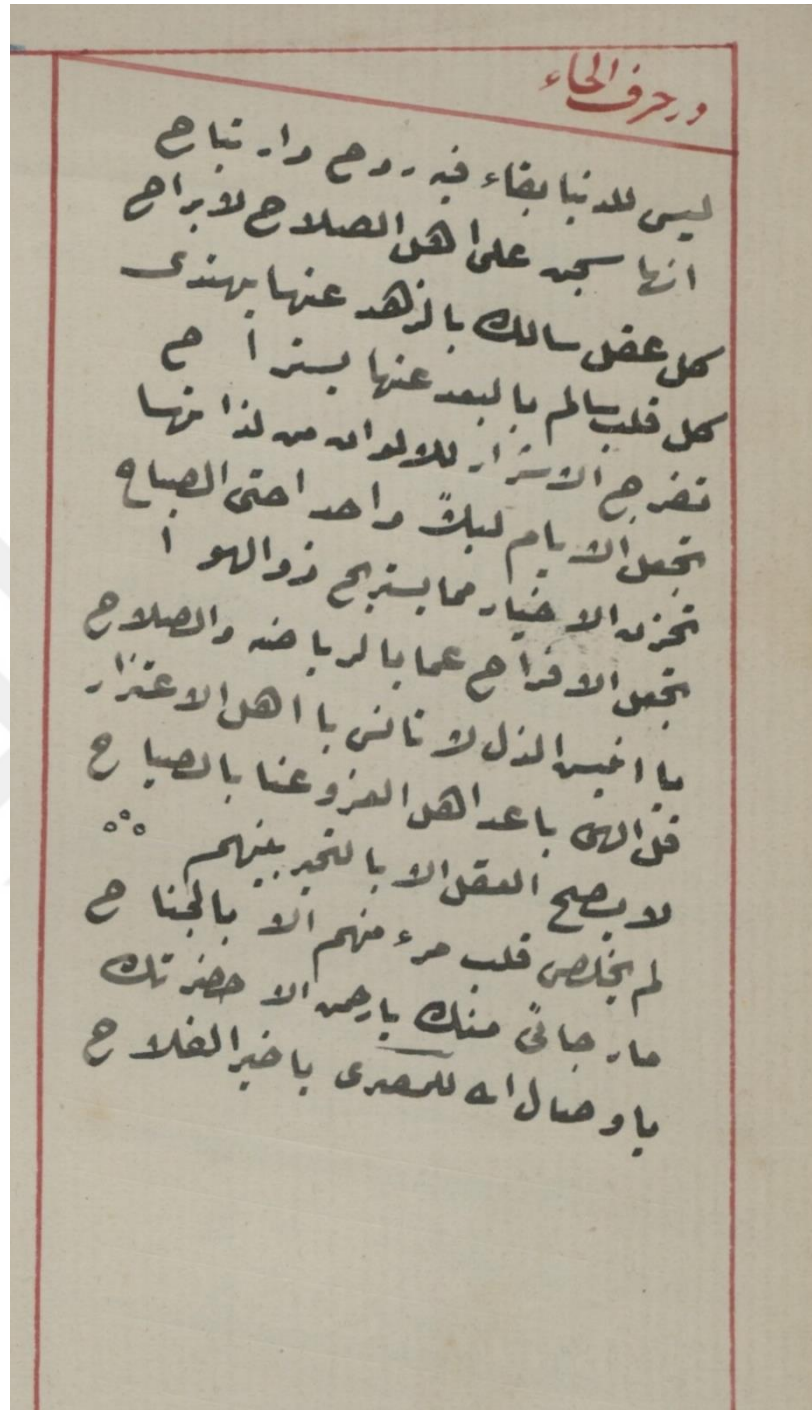 در حرف الحاء
ليس للدنيا بقاء فيه روح وارتياح
انها سجن على اهل الصلاح لا براح
كل عقل سالك بالزهد عنها يهتدى
كل قلب سالم بالبعد عنها يسترا ح
تفرح الاشرار للالوان من لذاتها
تجعل الايام ليلاً واحدا حتى الصباح
تحزن الاخيار مما يستريح ذو الهوا
تجعل الافراح عما بالرياضه والصلاح
يا اخيس الذل لا تانس با اهل الاعتذار
قل الهى باعد اهل العز و عنا بالصياح
لا يصح العقل الا بالتحير بينهم
لم يخلص قلب مرء منهم الا بالجناح
ما رجائى منك يا رحمن الا حضرتك
يا وصال الله للمصرى يا خير الفلاح